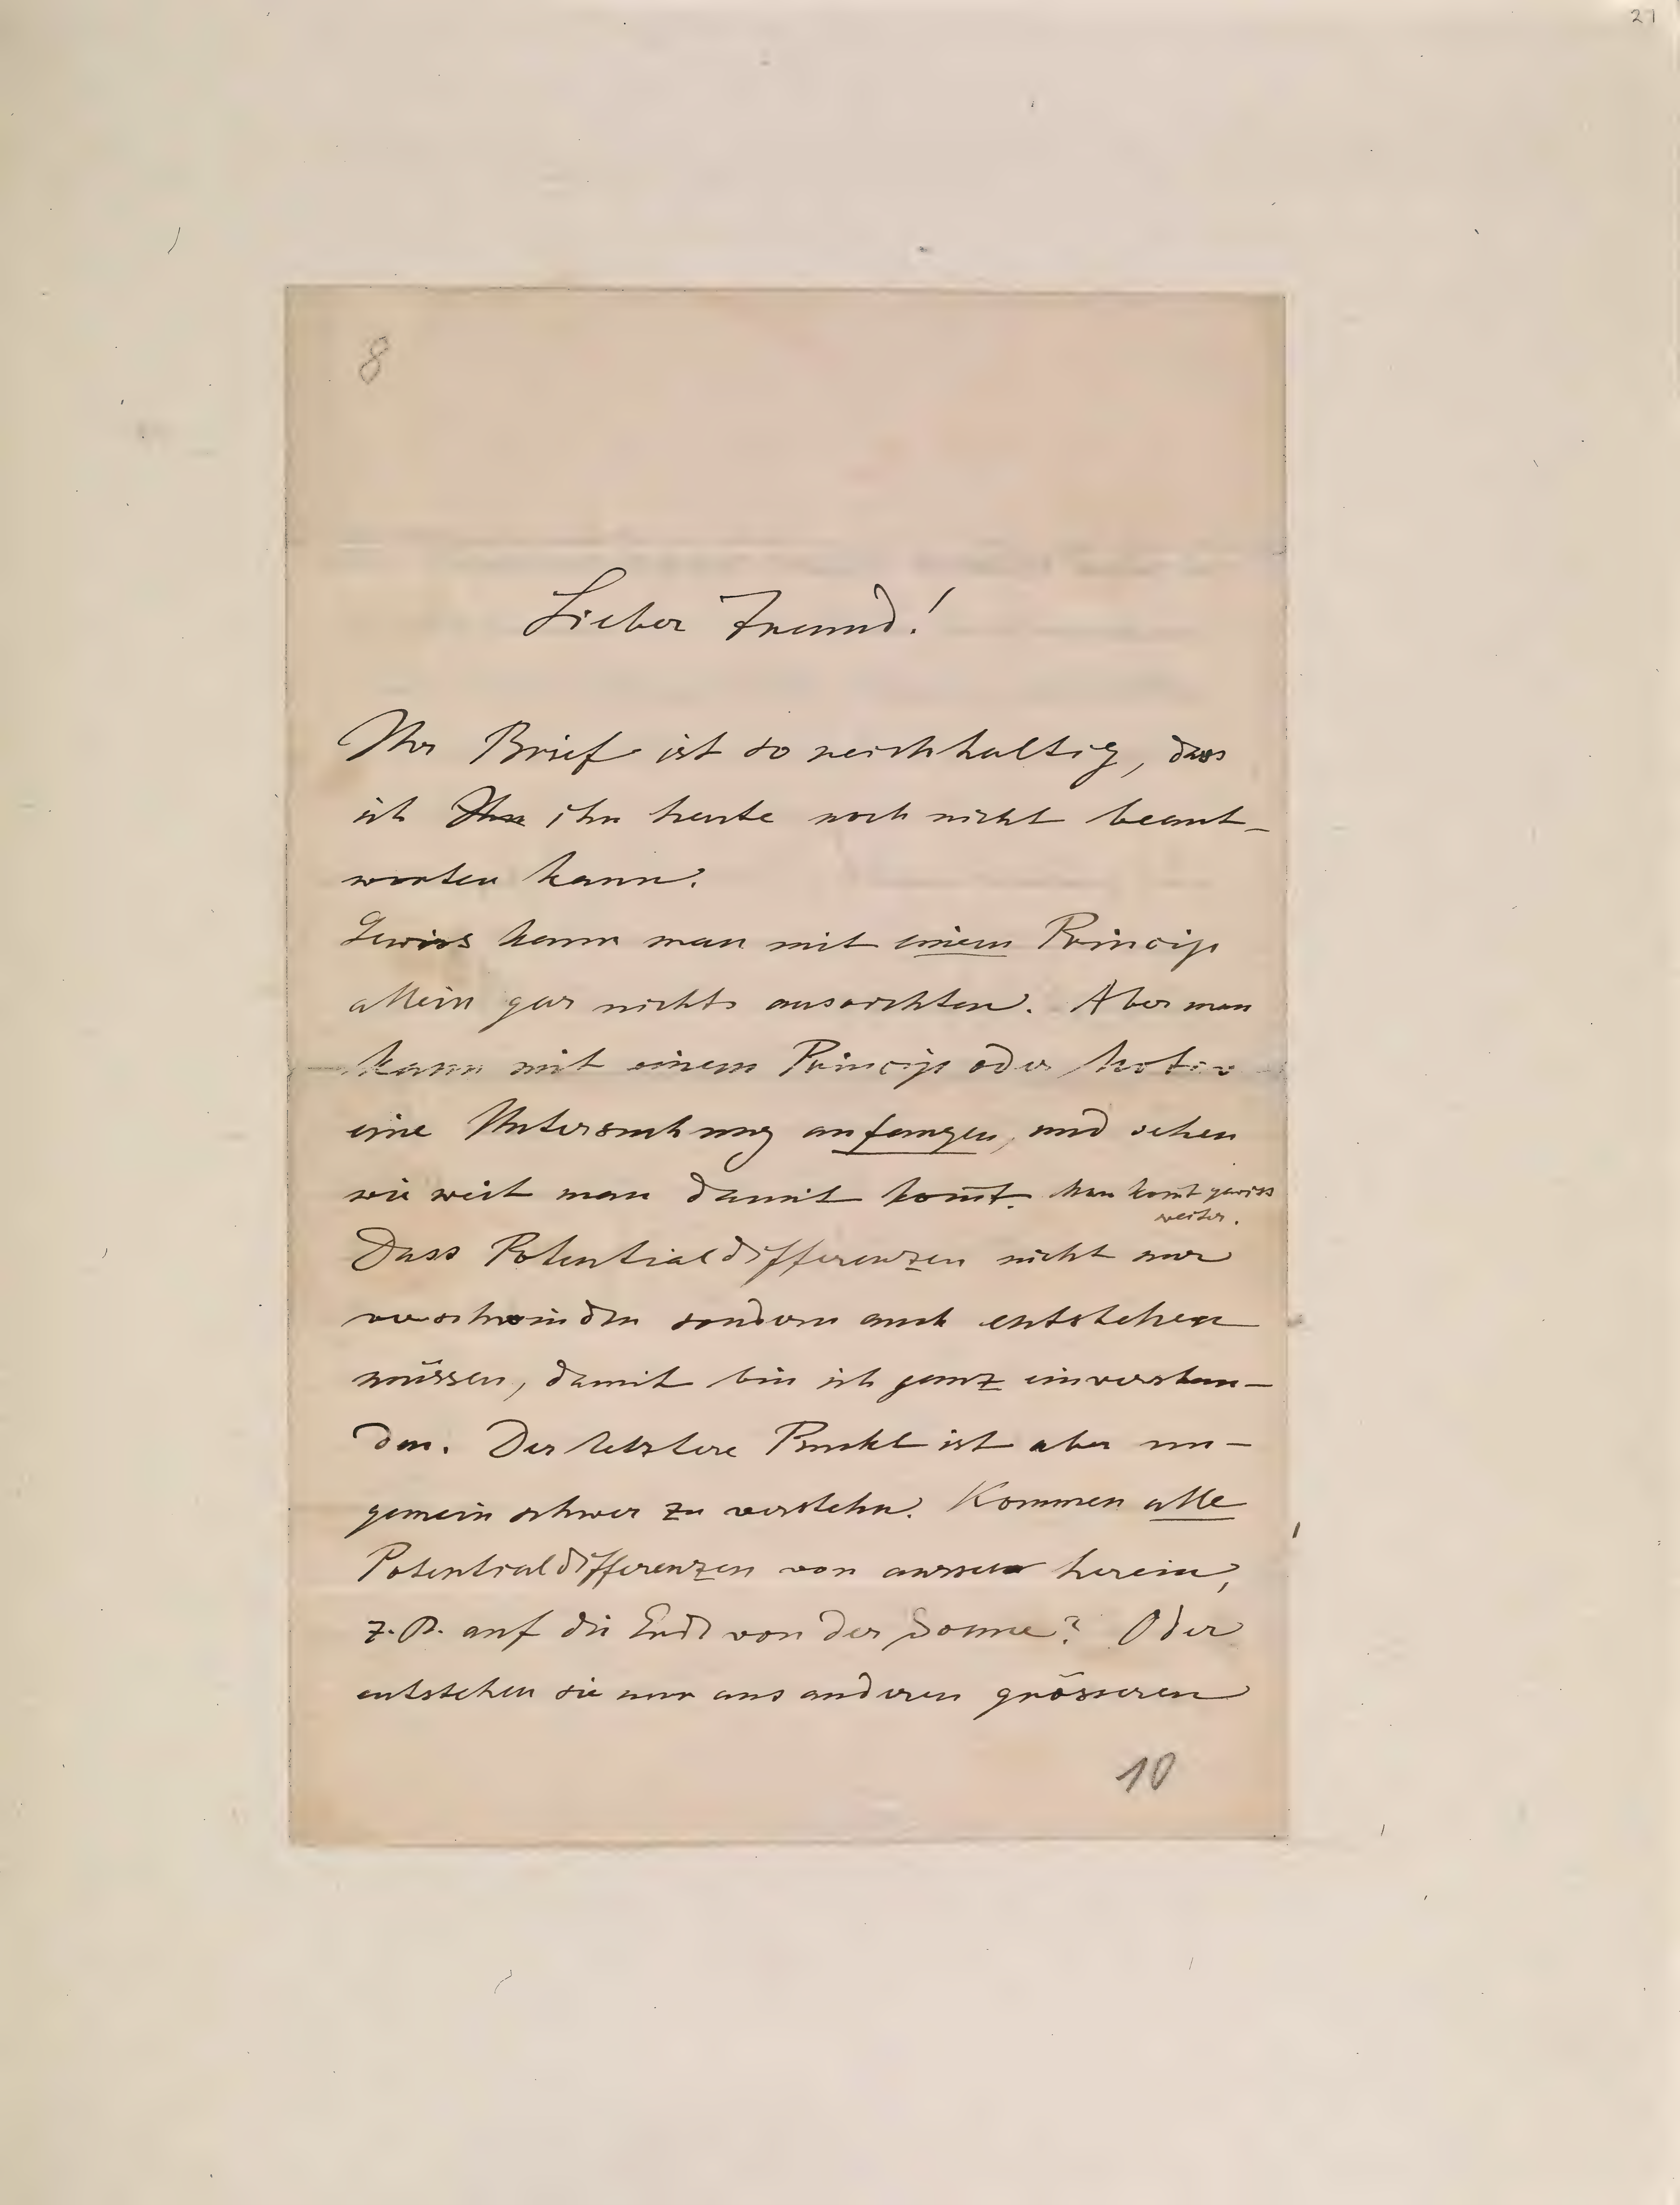 27
8
Lieber Freund!
Ihr Brief ist so reichhaltig, dass
ich Ihn ihn heute noch nicht beant-
worten kann.
Gewiss kann man mit einem Princip
allein gar nichts ausrichten. Aber man
kann mit einem Princip oder Motiv
eine Untersuchung anfangen, und sehen
wie weit man damit kom̄t. Man kom̄t gewiss
weiter.
Dass Potentialdifferenzen nicht nur
verschwinden sondern auch entstehen
müssen, damit bin ich ganz einverstan-
den. Der letztere Punkt ist aber un-
gemein schwer zu verstehn. Kommen alle
Potentialdifferenzen von aussen herein,
z. B. auf die Erde von der Sonne? Oder
entstehen sie nur aus anderen grösseren
10